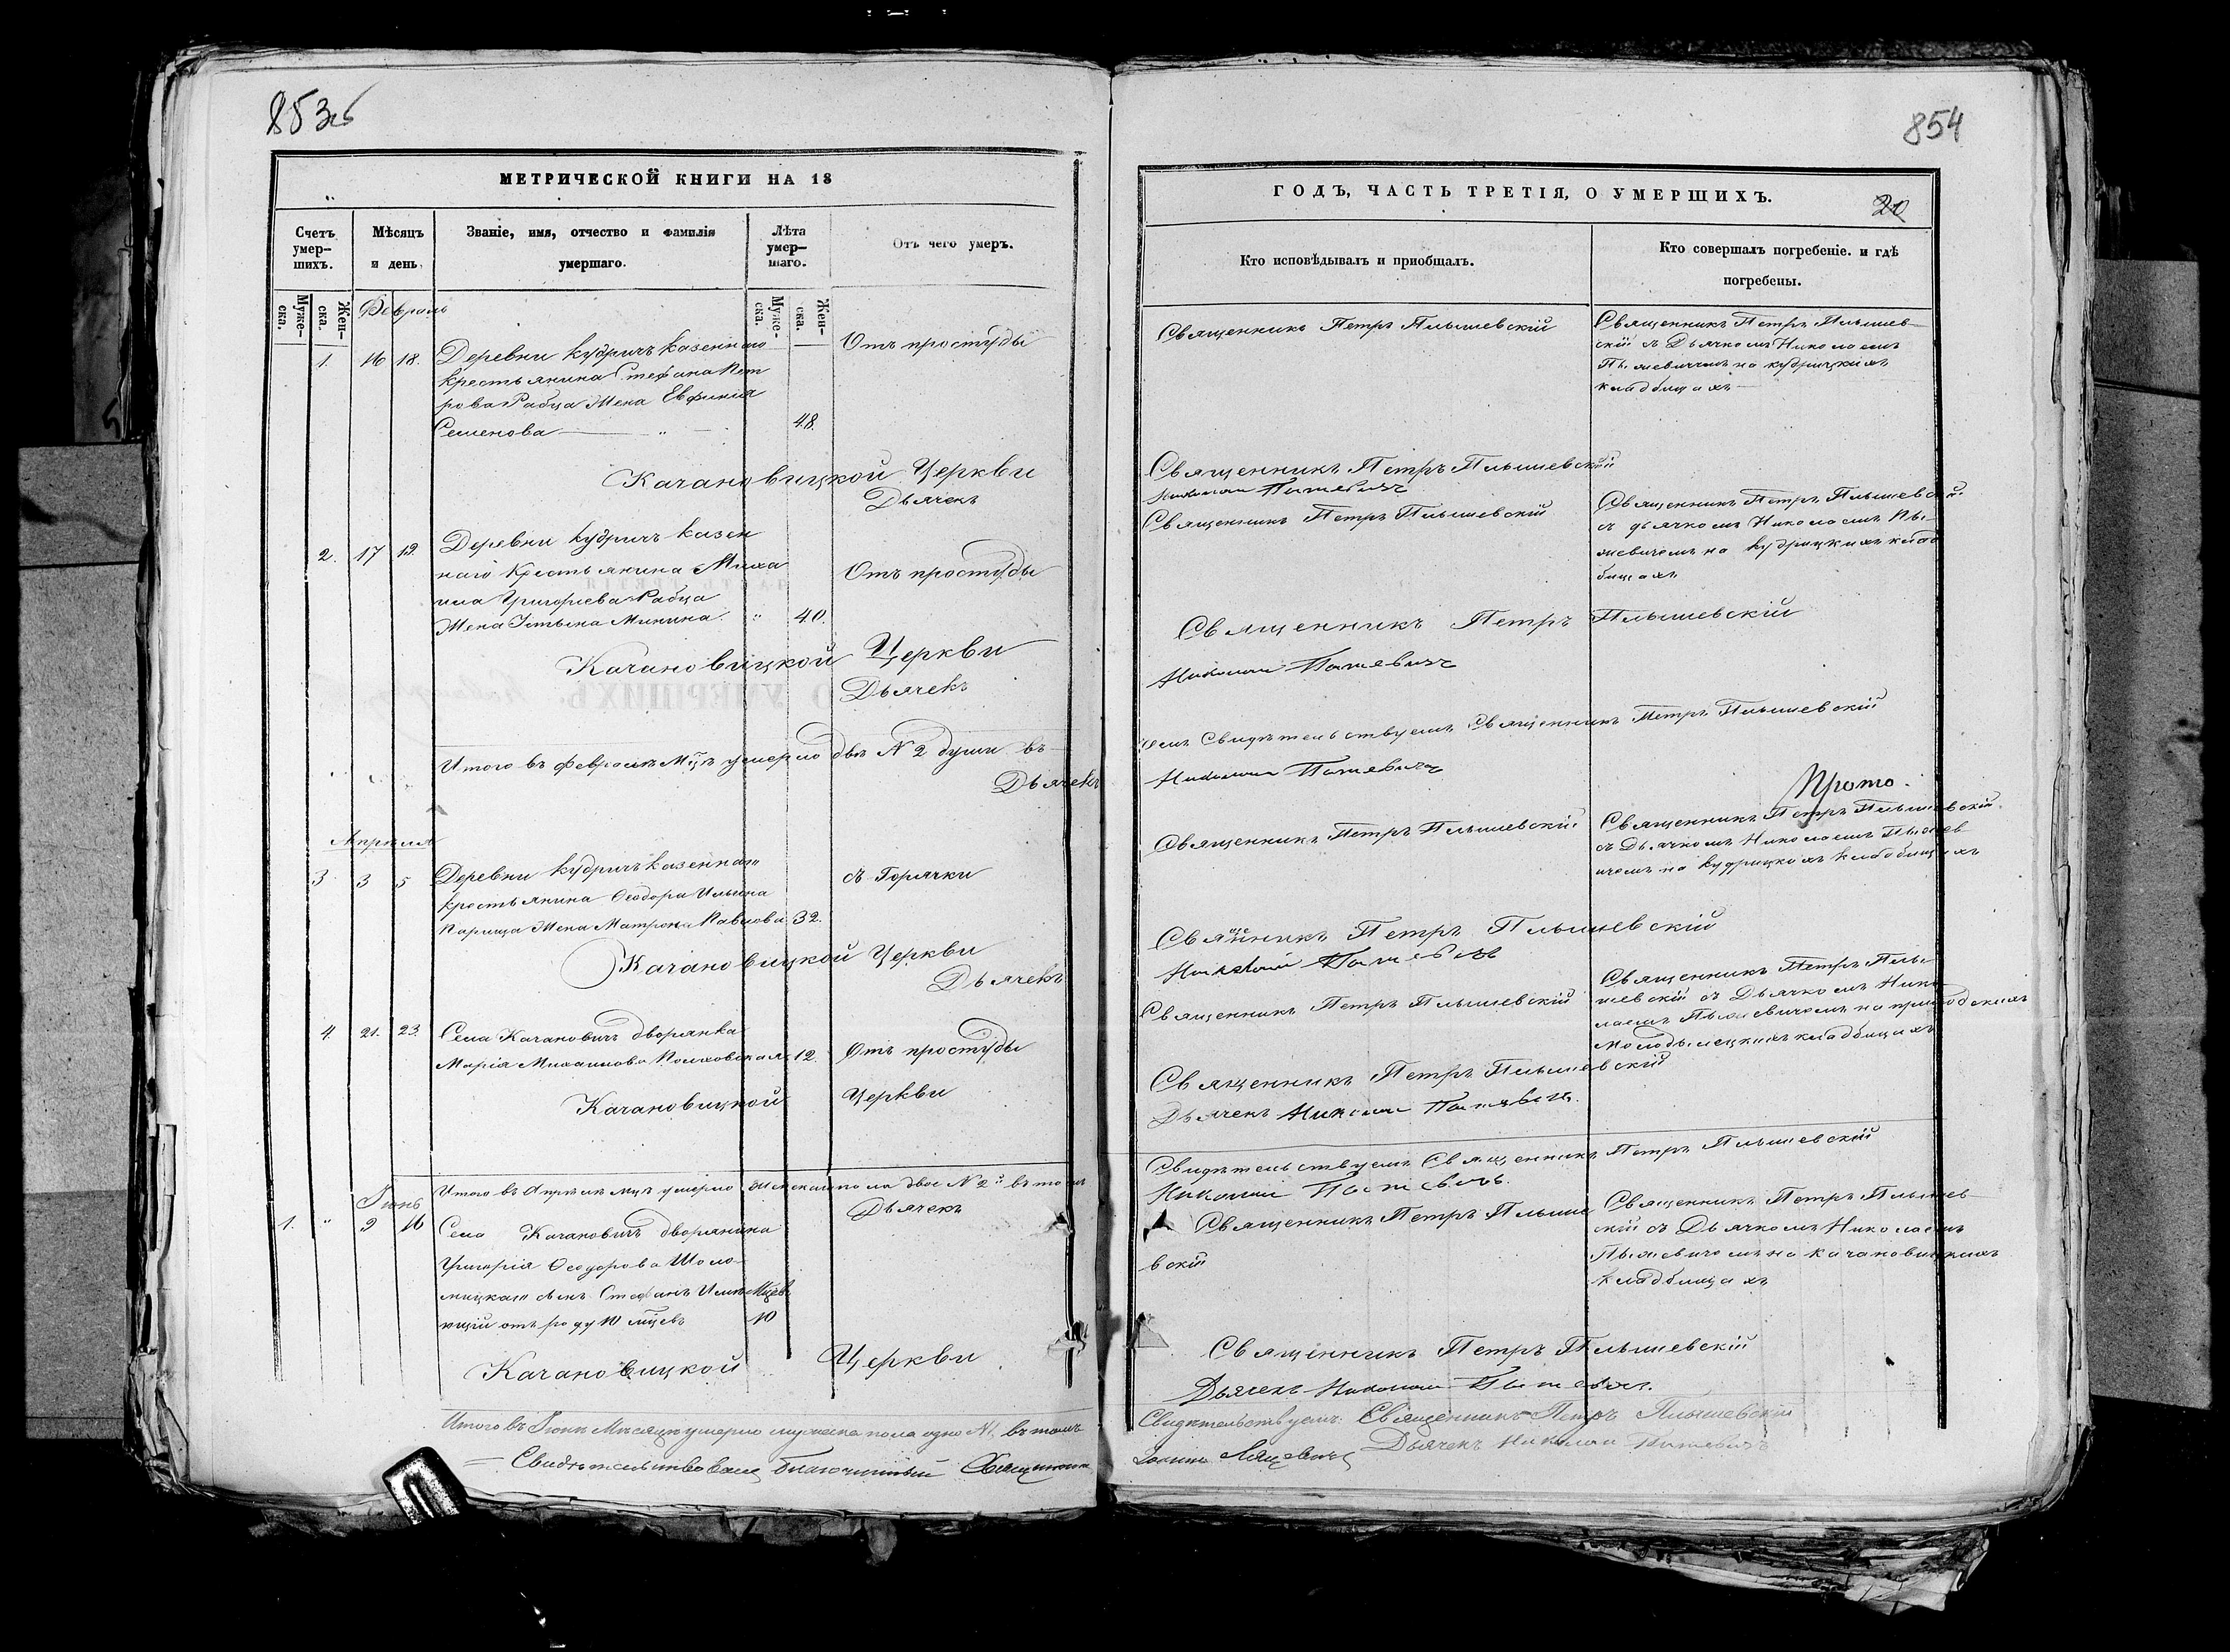 853об
МЕТРИЧЕСКОЙ КНИГИ НА 18
Счетъ умер-шихъ.
Мѣсяцъ и день
Званіе, имя, отчество и фамилія умершаго.
Лѣта умер-шаго.
Отъ чего умеръ.
Муже-ска.
Жен-ска.
Муже-ска.
Жен-ска.
Февраль
1. 16 18. Деревни Кудричъ казеннаго
крестьянина Стефана Пет
рова Рабца Жена Евфимія
Семенова — „ — 48.
Отъ простуды
Качановицкой Церкви
Дьячекъ
2. 17 19. Деревни Кудричъ казен
наго Крестьянина Миха
ила Григорьева Рабца
Жена Минина. „ 40.
Отъ простуды
Качановицкой Церкви
Дьячекъ
Итого въ февралѣ Мцѣ умерло двѣ №2 души въ
Дьячекъ
Апрѣля
3 3 5 Деревни Кудричъ казеннаго
крестьянина Ѳеодора Ильина
Парица Жена Матрона Павлова 32.
съ Горячки
Качановицкой Церкви
Дьячекъ
4. 21. 23. Села Качановичъ дворянка
Марія Михаилова 12.
Отъ простуды
Качановицкой Церкви
Итого въ Апрѣлѣ мцѣ умерло женскаго пола двое №2й въ томъ
Дьячекъ
Іюнь
1. „ 9 16 Села Качановичъ дворянина
Григорія Ѳеодорова Шоло-
мицкаго сынъ Стефанъ
отъ роду 10 мцевъ
Мцев
10
Качановицкой Церкви
Итого въ Іюнѣ Мѣсяцѣ умерло мужеска пола одно №1. въ томъ
Свидѣтельствовалъ Благочинный Священникъ
854
ГОДЪ, ЧАСТЬ ТРЕТІЯ, О УМЕРШИХЪ.
20
Кто исповѣдывалъ и пріобщалъ.
Кто совершалъ погребеніе. и гдѣ погребены.
Священникъ Петръ Плышевскій
Священникъ Петръ Плышев-
скій съ Дьячкомъ Николаемъ
на Кудрицкихъ
кладбищахъ
Священникъ Петръ Плышевскій
Николай
Священникъ Петръ Плышевскій
Священникъ Петръ Плышевскій
съ дьячкомъ Николаемъ
на Кудрицкихъ кладбищахъ
Священникъ Петръ Плышевскій
Николай
чемъ Свидѣтельствуемъ Священникъ Петръ Плышевскій
Николай
Прото.
Священникъ Петръ Плышевскій
Священникъ Петръ Плышевскій
съ Дьячкомъ Николаемъ
на Кудрицкихъ кладбищахъ
Священникъ Петръ Плышевскій
Николай
Священникъ Петръ Плышевскій
Священникъ Петръ Плы-
шевскій съ Дьячкомъ Нико-
лаемъ на приходскихъ
кладбищахъ
Священникъ Петръ Плышевскій
Дьячекъ Николай
Свидѣтельствуемъ Священникъ Петръ Плышевскій
Николай
Священникъ Петръ Плыше
вскій
Священникъ Петръ Плышев-
скій съ Дьячкомъ Николаемъ
на Качановицкихъ
кладбищахъ
Священникъ Петръ Плышевскій
Дьячекъ Николай
Свидѣтельствуемъ: Священникъ Петръ Плышевскій
Дьячекъ Николай